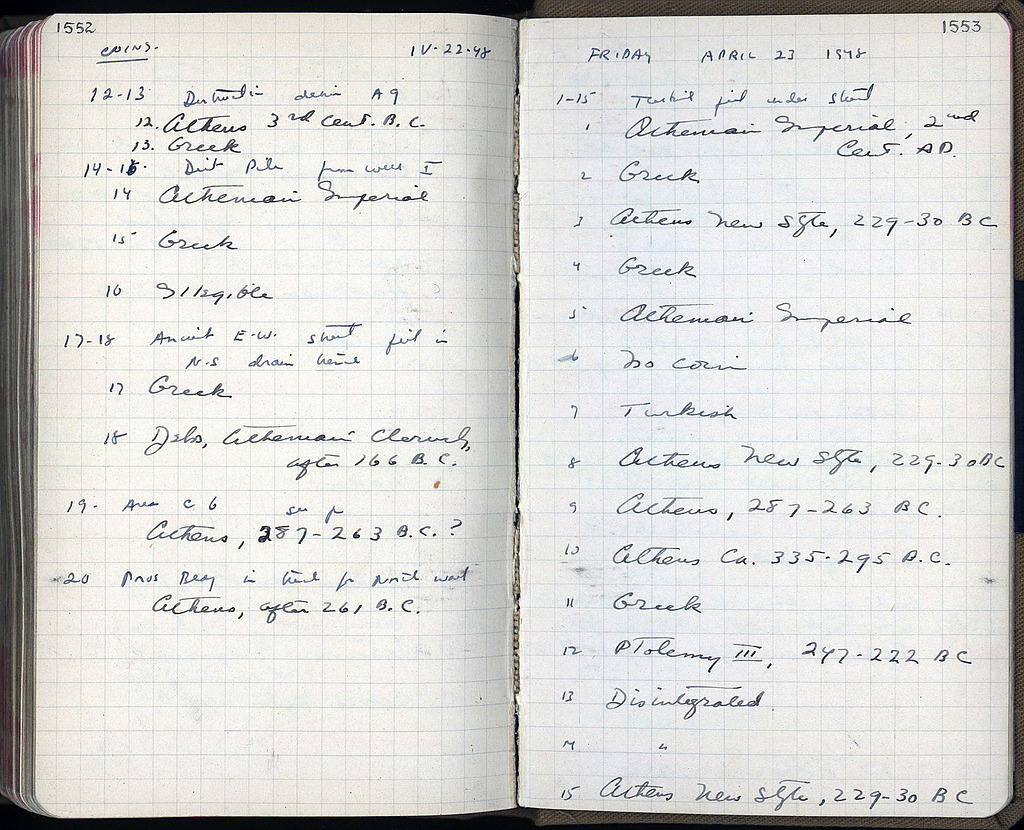 1552
COINS.
IV-22-48
12-13 A 9
12. Athens 3rd Cent. B.C.
13. Greek
14-16. Dirt Pile from well I
14 Athenian Imperial
15 Greek
16 Illegible
17-18 Ancient E-W. street fill in
N-S drain
17 Greek
18 Delos, Athenian Cleruchs,
after 166 B.C.
19. Area C 6
Athens, 287-263 B.C.?
20 in
Athens, after 261 B.C.
1553
FRIDAY APRIL 23 1948
1-15 Turkish fill under street
1 Athenian Imperial, 2nd
Cent. AD.
2 Greek
3 Athens New Style, 229-30 BC
4 Greek
5 Athenian Imperial
6 No coin
7 Turkish
8 Athens New Style, 229-30 BC
9 Athens, 287-263 BC.
10 Athens Ca. 335-295 B.C.
11 Greek
12 Ptolemy III, 247-222 BC
13 Disintegrated
14 "
15 Athens New Style, 229-30 BC